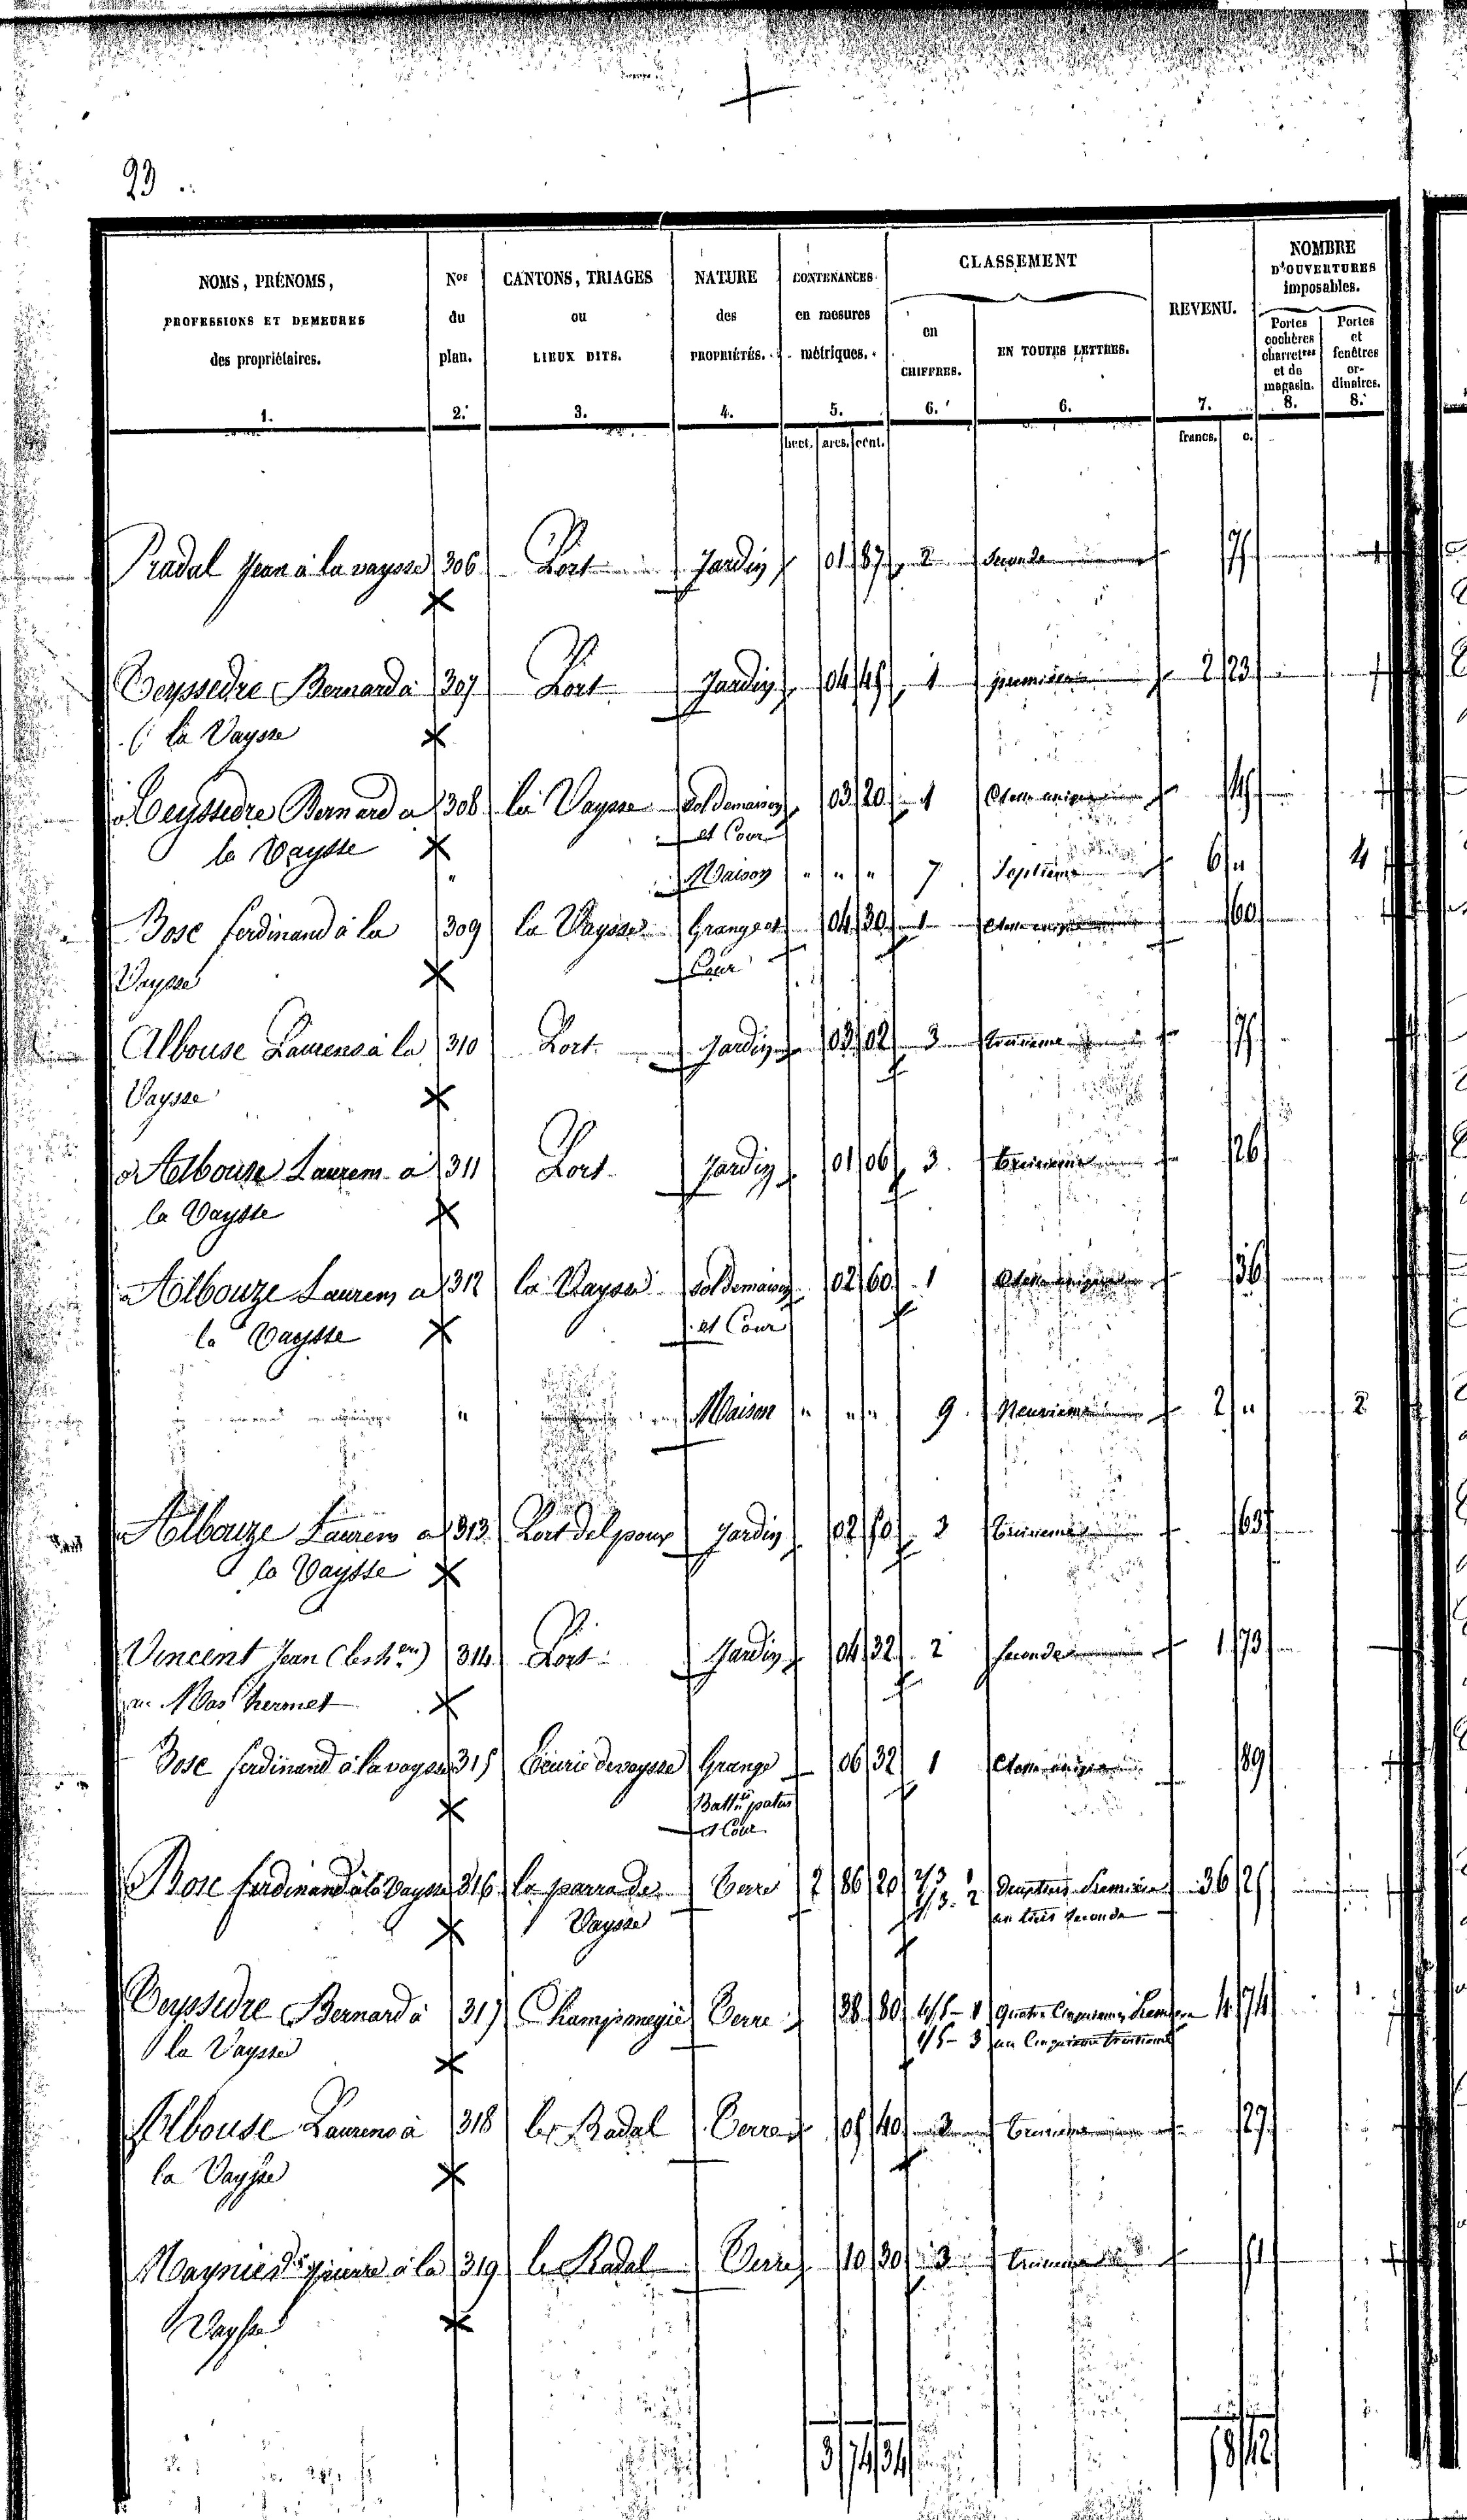 23
NOMS, PRÉNOMS, PROFESSIONS ET DEMEURES des propriétaires. 1.
Nos du plan. 2.
CANTONS, TRIAGES ou LIEUX DITS. 3.
NATURE des PROPRIÉTÉS. 4.
CONTENANCES en mesures métriques. 5.
CLASSEMENT
en CHIFFRES. 6.
EN TOUTES LETTRES. 6.
REVENU. 7.
NOMBRE D'OUVERTURES imposables.
Portes cochères charretres et de magasin. 8.
Portes et fenêtres ordinaires. 8.
hect. ares. cent. francs. c.
Pradal Jean à la vaysse 306 Lort Jardin 01 87 2 Seconde 75
Veyssedre Bernard à 307 Lort Jardin 04 45 1 premiere 2 23
la Vaysse
Veyssedre Bernard a 308 la Vaysse Sol de maison 03 20 1 Classe unique 45
la Vaysse et Cour
" Maison " " " 7 Septieme 6 " 4
Bosc ferdinand à la 309 la Vaysse Grange et 04 30 1 Classe unique 60
Vaysse Cour
Albouse Laurens à la 310 Lort Jardin 03 02 3 troisieme 75
Vaysse
Albouse Laurens a 311 Lort Jardin 01 06 3 troisieme 26
la Vaysse
Albouze Laurens a 312 la Vaysse Sol de maison 02 60 1 Classe unique 36
la Vaysse et Cour
" Maison " " " 9 Neuvieme 2 " 2
Albouze Laurens a 313 Lort del poux Jardin 02 50 3 troisieme 63
la Vaysse
Vincent Jean 314 Lort Jardin 04 32 2 Seconde 1 73
au Mas hermet
Bosc ferdinand à la vaysse 315 Ecurie de vaysse Grange 06 32 1 Classe unique 89
patus
et Cour
Bosc ferdinand à la Vaysse 316 la parra de Terre 2 86 20 2/3 1 Deux tiers Premiere 36 25
Vaysse 1/3 2 un tiers Seconde
Veyssedre Bernard à 317 Terre 38 80 4/5 1 Quatre Cinquiemes Premiere 4 74
la Vaysse 1/5 3 un Cinquieme troisieme
Albouse Laurens à 318 le Radal Terre 05 40 3 troisieme 27
la Vaysse
Pierre à la 319 le Radal Terre 10 30 3 troisieme 51
Vaysse
3 74 34